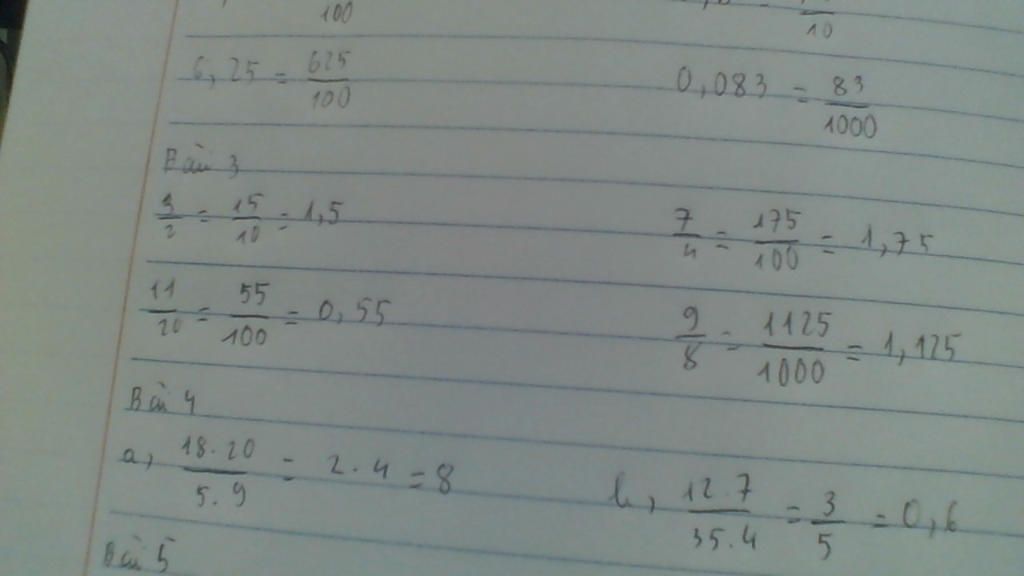 100
10
6,25 = 625/100    0,083 = 83/1000
Bài 3
3/2 = 15/10 = 1,5    7/4 = 175/100 = 1,75
11/20 = 55/100 = 0,55    9/8 = 1125/1000 = 1,125
Bài 4
a, 18.20/5.9 = 2.4 = 8    b, 12.7/35.4 = 3/5 = 0,6
Bài 5